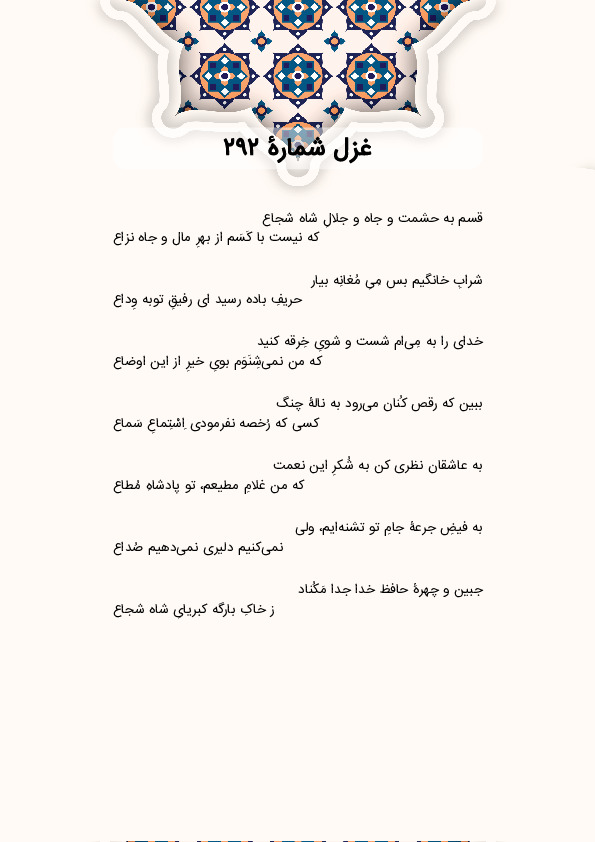 غزل شمارهٔ ۲۹۲
قسم به حشمت و جاه و جلالِ شاه شجاع
که نیست با کَسَم از بهرِ مال و جاه نزاع
شرابِ خانگیم بس مِیِ مُغانِه بیار
حریفِ باده رسید ای رفیقِ توبه وِداع
خدای را به مِی‌ام شست و شویِ خِرقه کنید
که من نمی‌شِنَوَم بویِ خیرِ از این اوضاع
ببین که رقص کُنان می‌رود به نالهٔ چنگ
کسی که رُخصه نفرمودی اِسْتِماعِ سَماع
به عاشقان نظری کن به شُکرِ این نعمت
که من غلامِ مطیعم، تو پادشاهِ مُطاع
به فیضِ جرعهٔ جامِ تو تشنه‌ایم، ولی
نمی‌کنیم دلیری نمی‌دهیم صُداع
جبین و چهرهٔ حافظ خدا جدا مَکُناد
ز خاکِ بارگه کبریایِ شاه شجاع